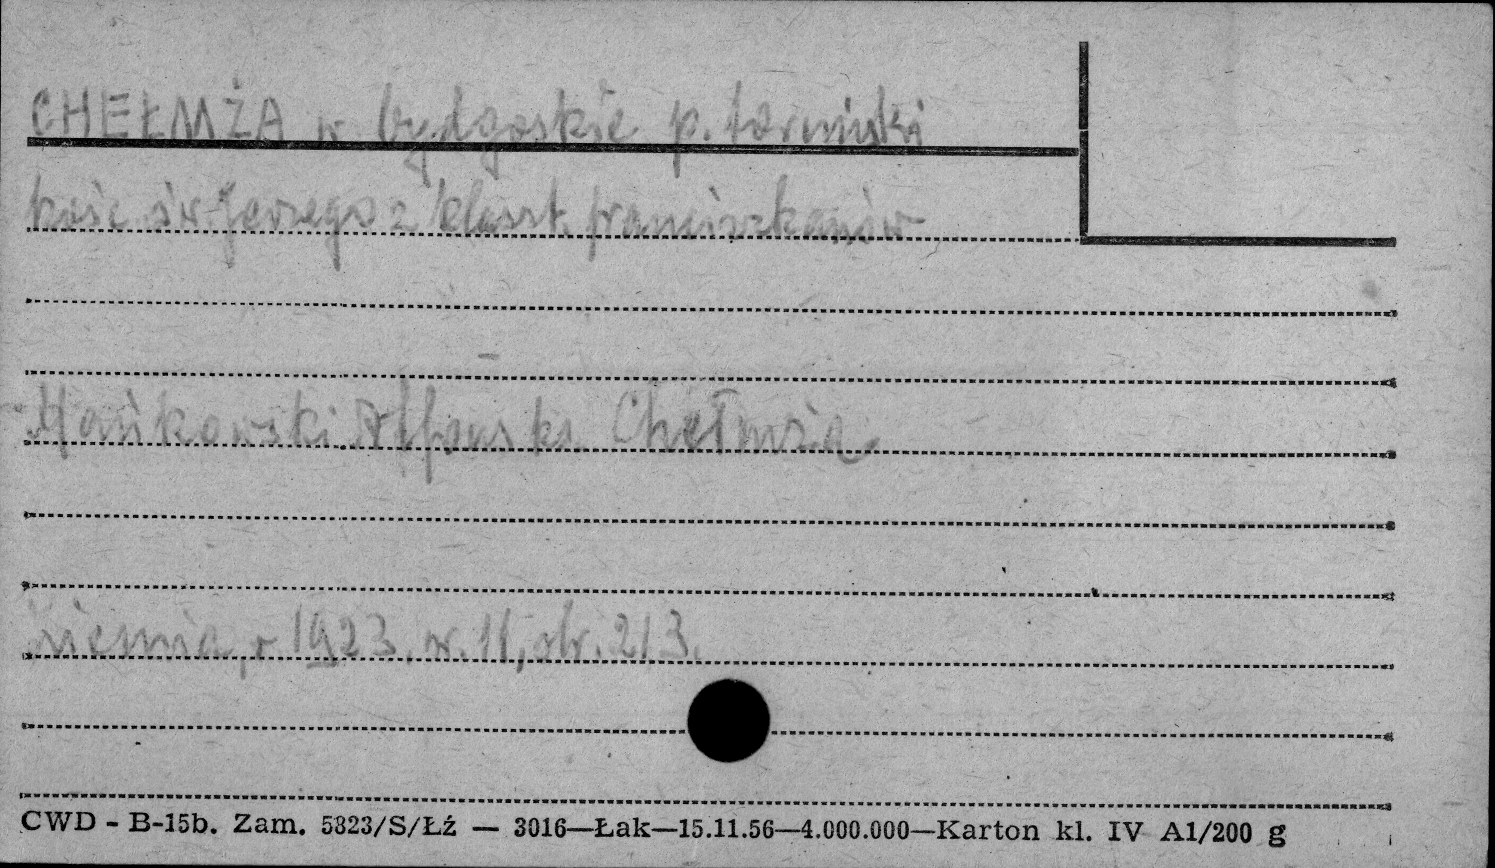 CHEŁMŻA w bydgoskie p. toruński
kośc. św. Jerzego z klaszt. franciszkanów
Mańkowski Alfons ks. Chełmża.
Ziemia, r 1923, nr. 11, str. 213.
CWD - B-15b. Zam. 5323/S/Łź — 3016—Łak—15.11.56—4.000.000—Karton kl. IV A1/200 g